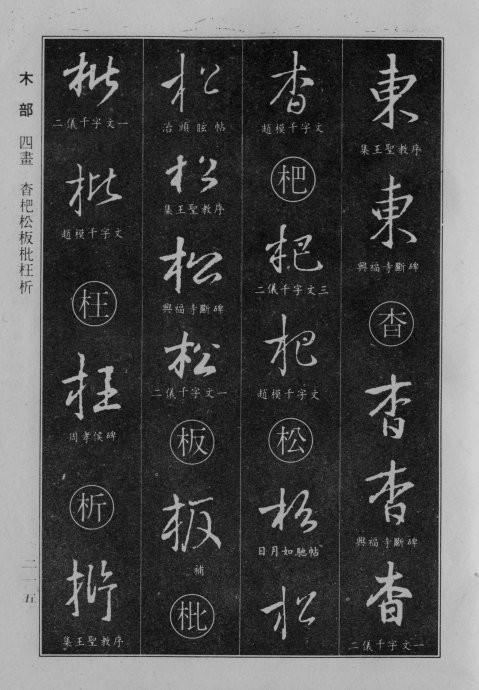 東
集王聖教序
東
興福寺斷碑
杳
杳
杳
興福寺斷碑
杳
二儀千字文一
杳
趙模千字文
杷
杷
二儀千字文三
杷
趙模千字文
松
松
日月如馳帖
松
松
治頭眩帖
松
集王聖教序
松
興福寺斷碑
松
二儀千字文一
板
板
補
枇
枇
二儀千字文一
枇
趙模千字文
枉
枉
周孝侯碑
析
析
集王聖教序
木部 四畫 杳杷松板枇枉析
二一五